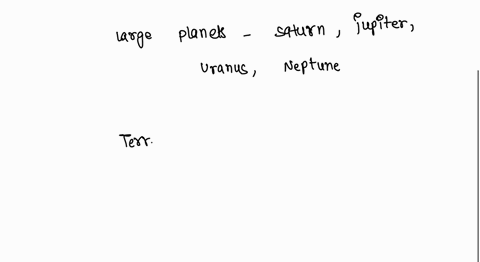 Large planets - saturn, jupiter,
Uranus, Neptune
Terr